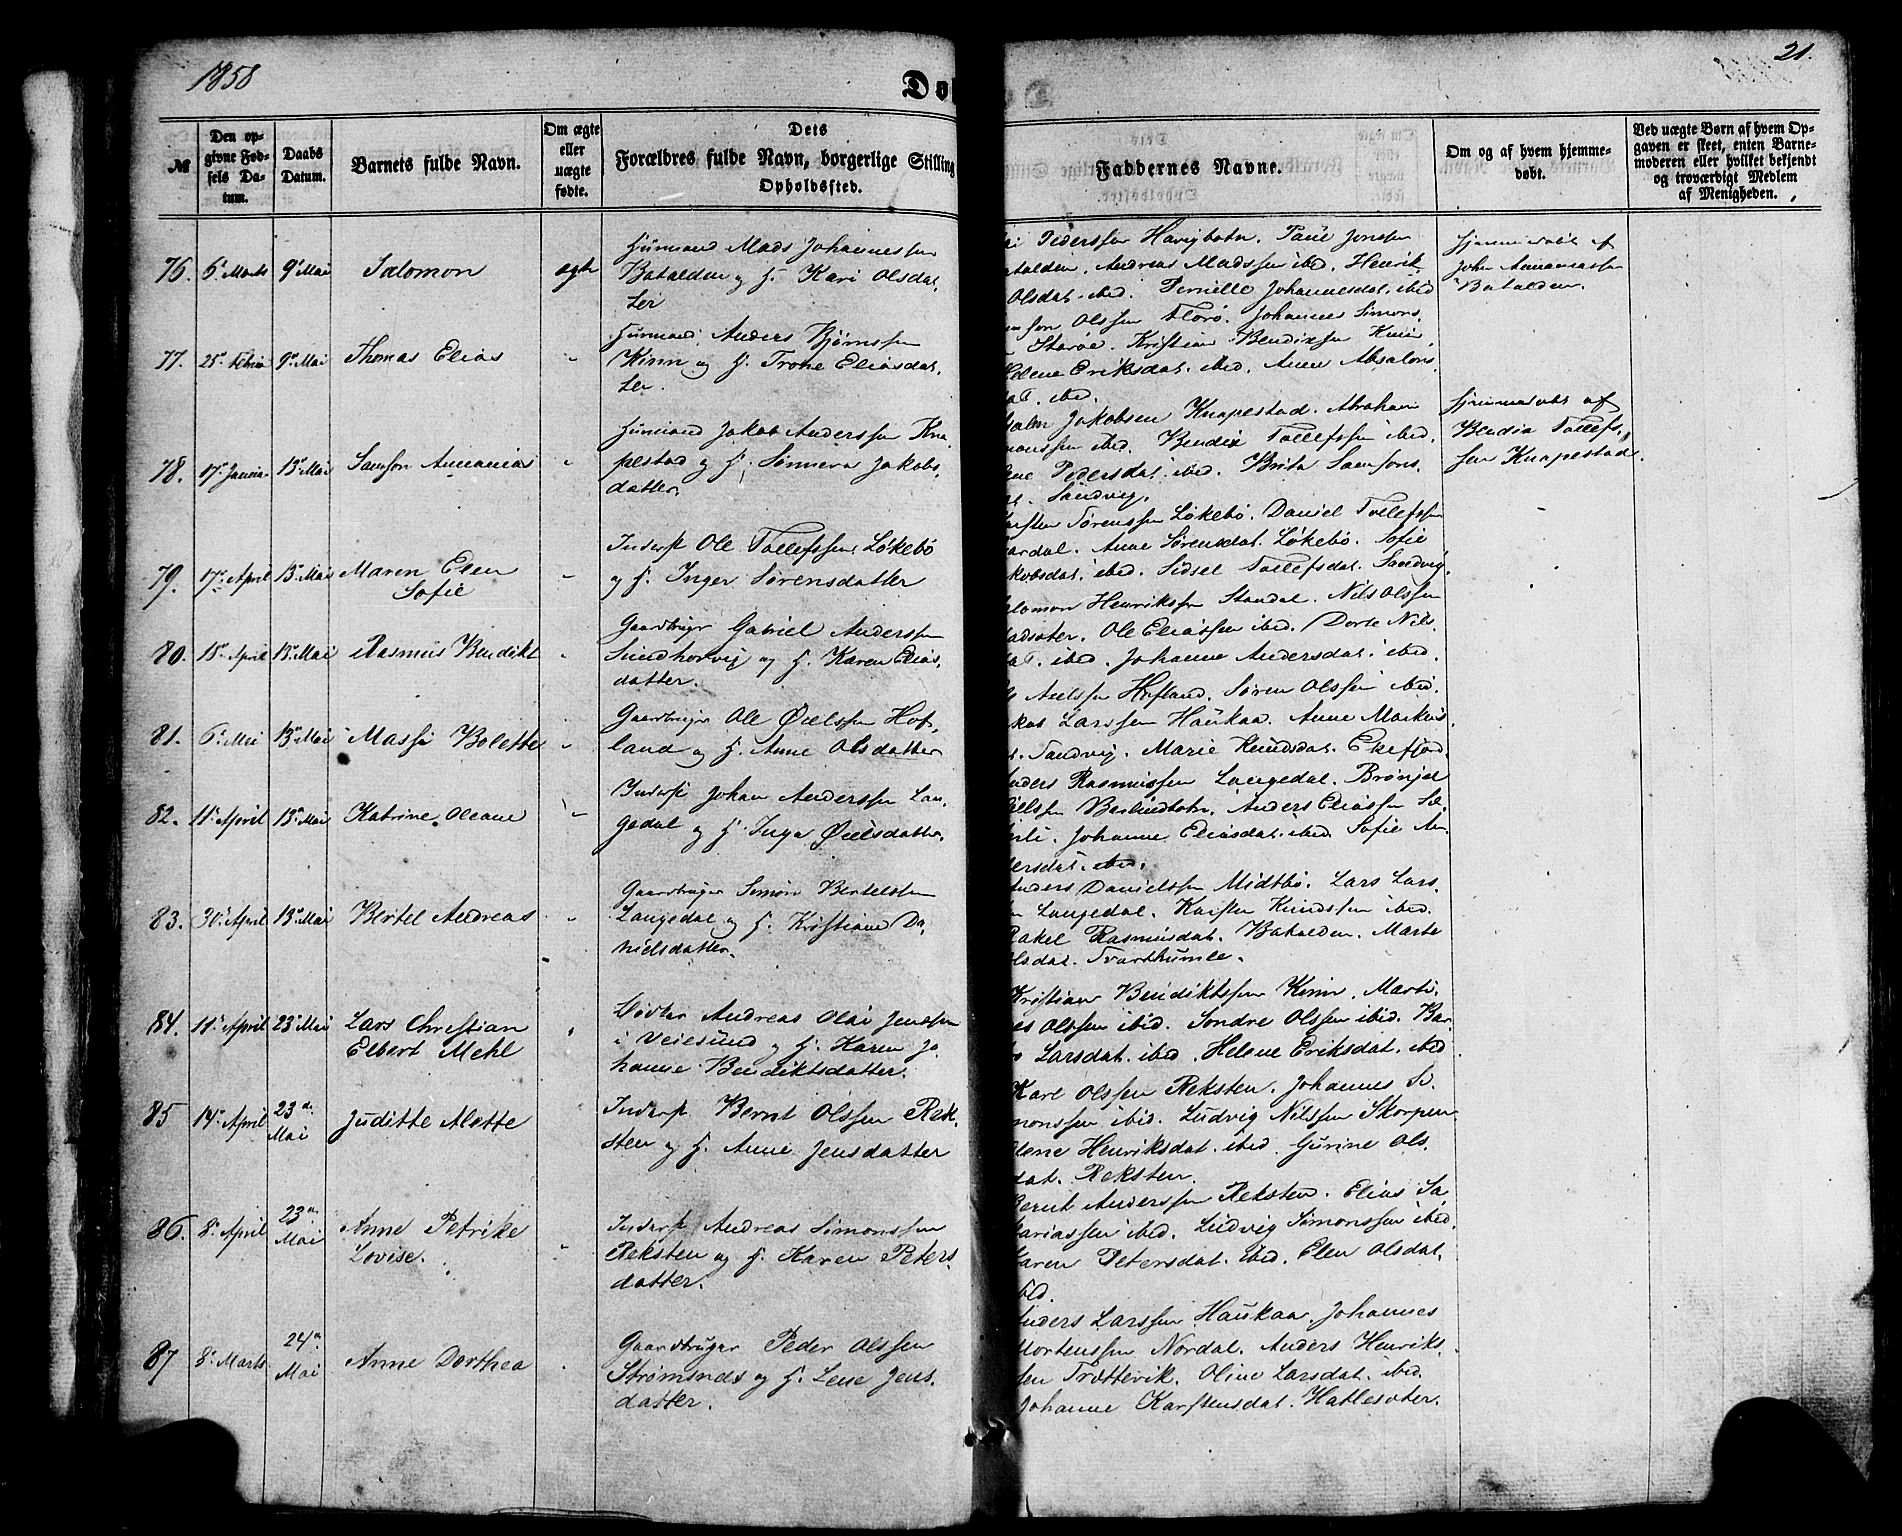 1858
21.
Døb
№
Den opgivne Fødsels Datum.
Daabs Datum.
Barnets fulde Navn.
Om ægte eller uægte fødte.
Dets
Forældres fulde Navn, borgerlige Stilling
Opholdssted.
Faddernes Navne.
Om og af hvem hjemmedøbt.
Ved uægte Børn af hvem Opgaven er skeet, enten Barnemoderen eller hvilket bekjendt og troværdigt Medlem af Menigheden.
76. 6 Marts 9 Mai Salomon ægte
Huusmand Mads Johannessen
Batalden og H. Kari Olsdat,
ter
Pederssen Havigbotn. Paul Jonssen
talden. Andreas Madssen ibid. Henrik
Olsdat. ibid. Pernille Johannesdat. ibid
Hjemmedøbt af
John Annaniassen
Batalden.
77. 25 Februar 9 Mai Thomas Elias "
Huusmand Anders Bjørnssen
Kinn og H. Trone Eliasdat,
ter.
Olssen Florø. Johannes Simons,
Starøe. Kristian Bendixsen Kinn,
Helene Eriksdat. ibid. Anne Absalons,
dat. ibid.
78. 17 Januar 13 Mai Samson Annanias "
Huusmand Jakob Anderssen Kna,
pestad og H. Sønneva Jakobs,
datter.
salm Jakobsen Knapestad. Abraham
monssen ibid. Bendix Tollefssen ibid.
ne Pedersdat. ibid. Brita Samsons,
t. Sandvig.
Hjemmedøbt af
Bendix Tollefs,
sen Knapestad.
79. 17 April 13 Mai Maren Elen
Sofie "
Inderst Ole Tollefssen Løkebø
og H. Inger Sørensdatter
arsten Sørenssen Løkebø. Daniel Tollefssen
ardal. Anne Sørensdat. Løkebø. Sofie
kobsdat. ibid. Sidsel Tollefsdat. Sandvig.
80. 18 April 13 Mai Rasmus Bendikt "
Gaardbruger Gabriel Anderssen
Sundhorvig og H. Karen Elias,
datter.
alomon Henrikssen Standal. Nils Olssen
adsæter. Ole Eliassen ibid. Dorte Nils,
dat. ibid. Johanne Andersdat. ibid.
81. 6 Mai 13 Mai Massi Bolette "
Gaardbruger Ole Øielssen Hof,
land og H. Anne Olsdatter
Axelssen Hofland. Søren Olssen ibid.
kob Larssen Haukaa. Anne Markus,
t. Sandvig. Marie Knudsdat. Eikefjord.
82. 11 April 13 Mai Katrine Oleane "
Inderst Johan Anderssen Lan,
gedal og H. Inga Øielsdatter.
nders Rasmussen Langedal. Brønjel
Anders Eliassen Sol,
Johanne Eliasdat. ibid. Sofie An,
dersdat. ibid.
83. 30 April 13 Mai Bertel Andreas "
Gaardbruger Simon Bertelssen
Langedal og H. Kristiane Da,
nielsdatter.
nders Danielssen Midtbø. Lars Lars,
n Langedal. Karsten Knudssen ibid.
Rakel Rasmusdat. Batalden. Marte
Olsdat. Svarthumle.
84. 11 April 23 Mai Lars Christian
Elbert Mehl "
Andreas Olai Jenssen
i Veiesund og H. Karen Jo
hanne Bendiktsdatter.
Kristian Bendiktssen Kinn. Marti,
es Olssen ibid. Sondre Olssen ibid. Bar,
Larsdat. ibid. Helene Eriksdat. ibid
85 14 April 23 Mai Juditte Alette
Inderst Bernt Olssen Rek,
sten og H. Anne Jensdatter
Karl Olssen Reksten. Johannes Si,
monssen ibid. Ludvig Nilssen Skorpen
lene Henriksdat. ibid. Gurine Ols,
dat. Reksten.
86. 8 April 23 Mai Anne Petrike
Lovise. "
Inderst Andreas Simonssen
Reksten og H. Karen Peters
datter.
Bernt Anderssen Reksten. Elias Sa
kariassen ibid. Ludvig Simonssen ibid.
Karen Petersdat. ibid. Elen Olsdat.
ibid.
87 8 Marts 24 Mai Anne Dorthea "
Gaardbruger Peder Olssen
Strømsnes og H. Lene Jens,
datter.
Anders Larssen Haukaa. Johannes
Mortenssen Nordal. Anders Henriks,
sen Trættevik. Oline Larsdat. ibid.
Johanne Karstensdat. Hatlesæter.